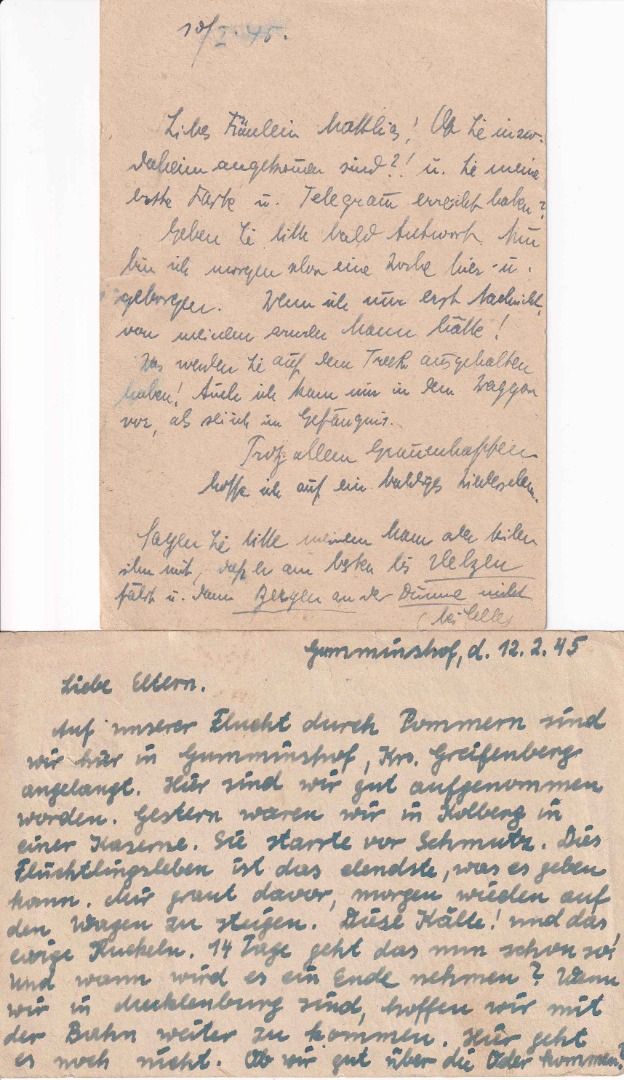 10/I. 45.
Liebes Fräulein Matthies! Ob Sie inzw.
daheim angekommen sind?! u. Sie meine
erste Karte u. Telegram erreicht haben?
Geben Sie bitte bald Antwort. Nun
bin ich morgen schon eine Woche hier u.
geborgen. Wenn ich nur erst Nachricht
von meinem Mann hätte!
Was werden Sie auf dem Treck ausgehalten
haben! Auch ich kam mir in dem Waggon
vor, als sei ich im Gefängnis.
Trotz allem Grauenhaften
hoffe ich auf ein baldiges Wiedersehen.
Sagen Sie bitte meinem Mann oder teilen
ihm mit, daß er am besten bis Uelzen
fährt u. dann Bergen an der Dumme nicht
(bei Celle)
Gumminshof, d. 12. 2. 45
Liebe Eltern.
Auf unserer Flucht durch Pommern sind
wir hier in Gumminshof, Krs. Greifenberg
angelangt. Hier sind wir gut aufgenommen
worden. Gestern waren wir in Kolberg in
einer Kaserne. Sie starrte vor Schmutz. Dies
Flüchtlingsleben ist das elendste, was es geben
kann. Mir graut davor, morgen wieder auf
den Wagen zu steigen. Diese Kälte! und das
ewige Ruckeln. 14 Tage geht das nun schon so!
Und wann wird es ein Ende nehmen? Wenn
wir in Mecklenburg sind, hoffen wir mit
der Bahn weiter zu kommen. Hier geht
es noch nicht. Ob wir gut über die Oder kommen?